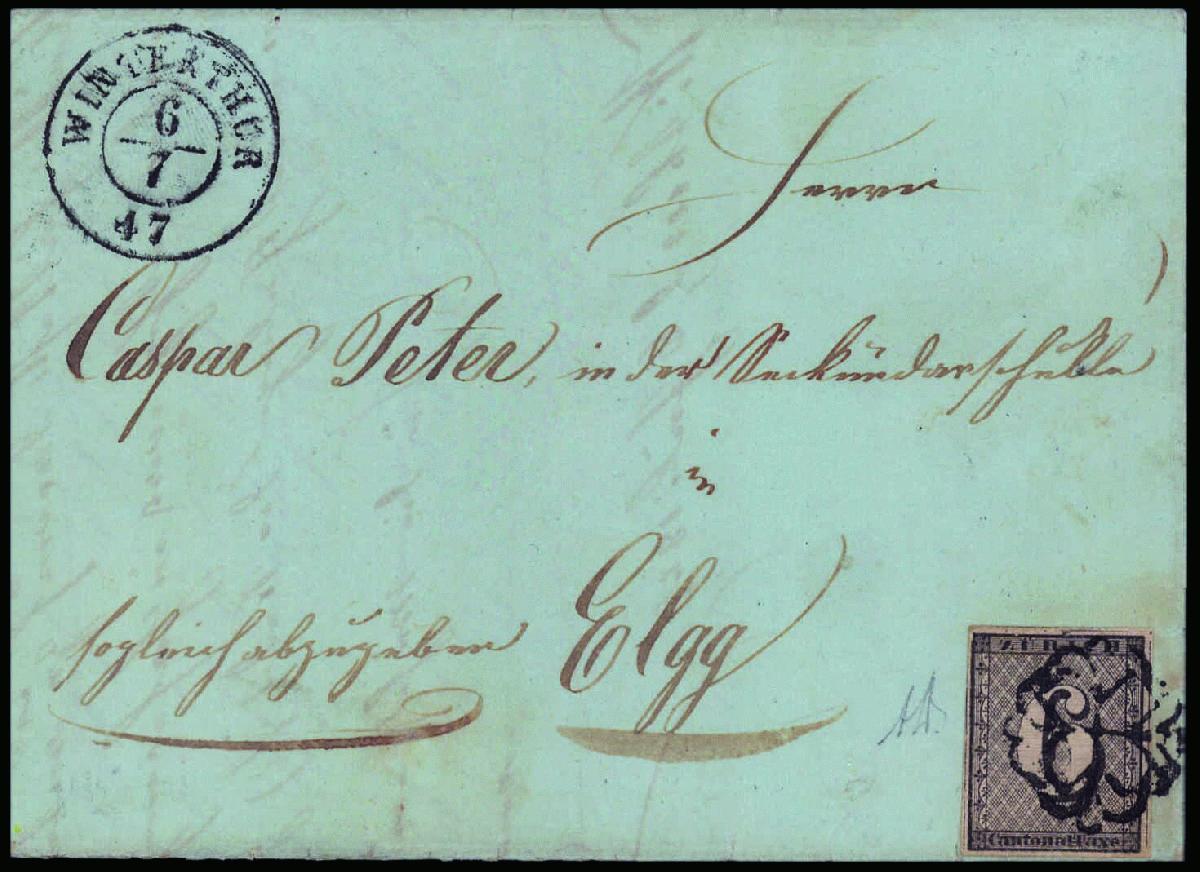 WINTERTHUR
6
7
47
Herrn
Caspar Peter, in der Seckŭndarschŭlle
in
Elgg
sogleich abzŭgeben
ZÜRICH
6
Cantonal-Taxe